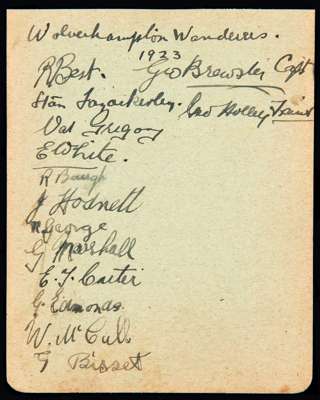 Wolverhampton Wanderers.
1923
R Best. Geo Brewster Capt
Stan Fazackerley. Geo Holley Trainer
Val Gregory
E White.
R Baugh
J Hodnett
N George
G Marshall
E. J. Carter
G. Edmonds.
W. McCall
G Bisset